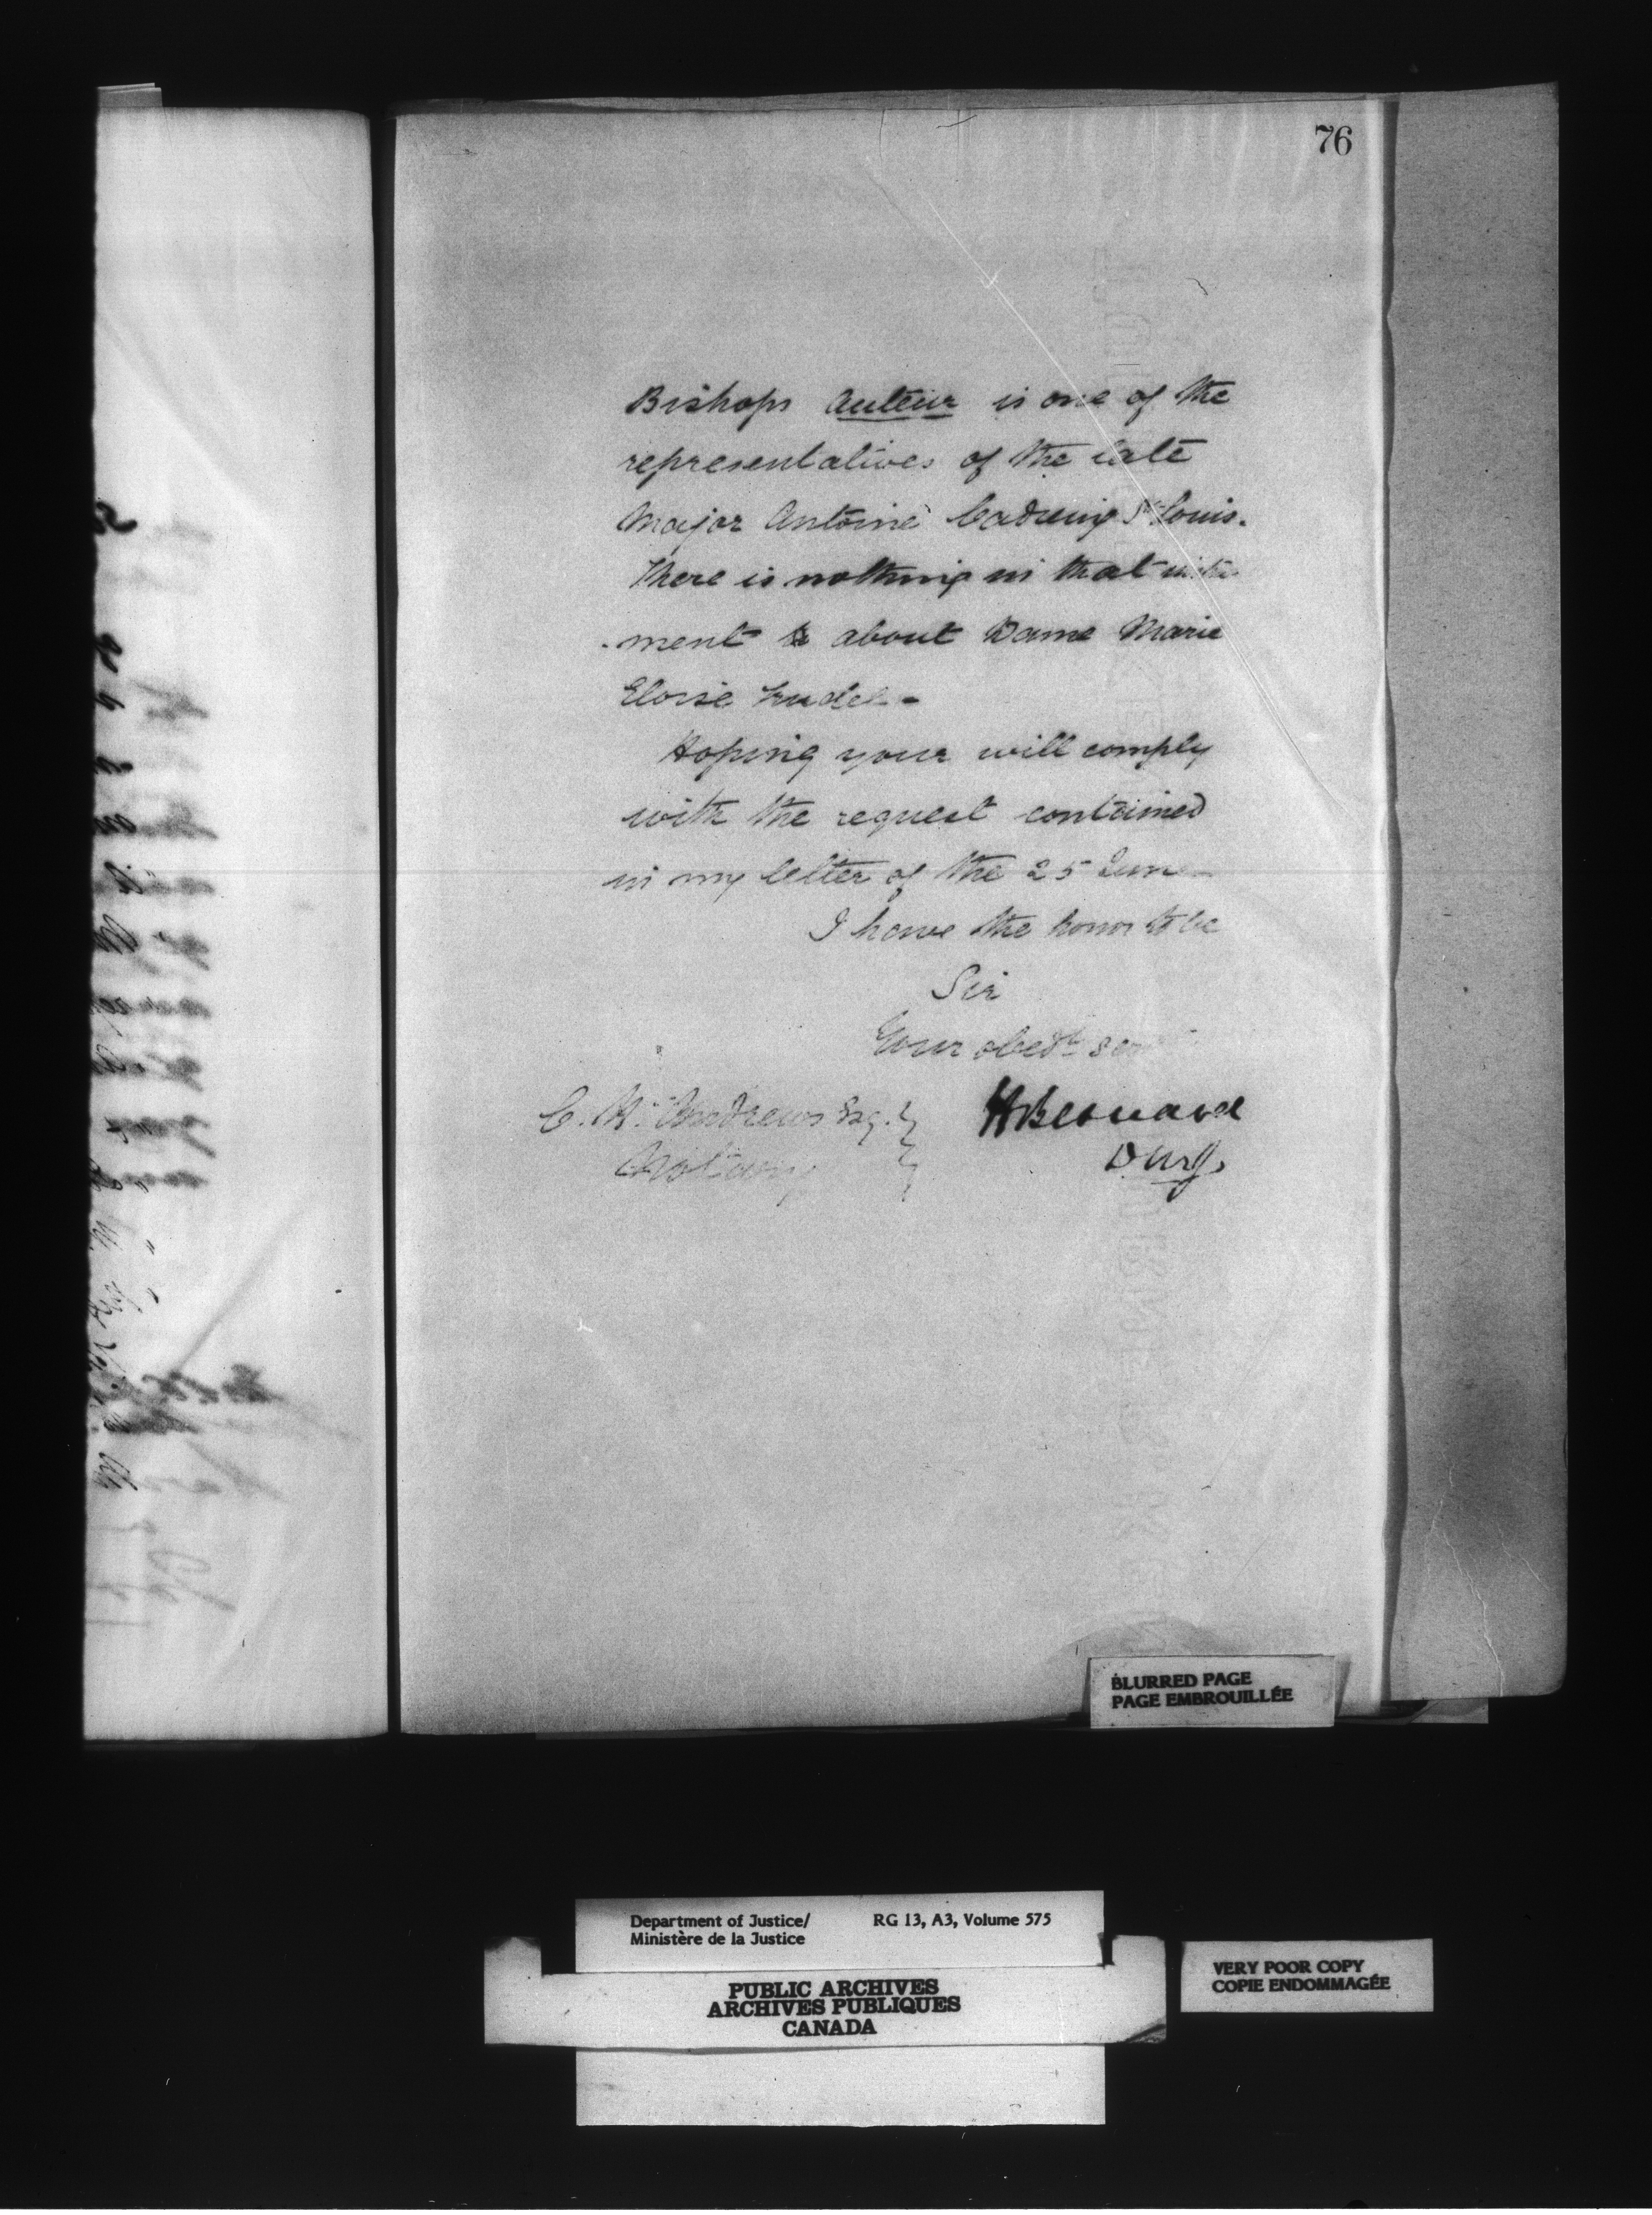 76
Bishops auteur is one of the
representatives of the late
Major Antoine St Louis.
There is nothing in that instru
-ment about Dame Marie
Eloise Trudel -
Hoping your will comply
with the request contained
in my letter of the 25 June
I have the honor to be
Sir
Your obedt ser
C. Andrews Esq.
Notary
H Bernard
D.M.J.
BLURRED PAGE
PAGE EMBROUILLÉE
Department of Justice/ RG 13, A3, Volume 575
Ministère de la Justice
PUBLIC ARCHIVES
ARCHIVES PUBLIQUES
CANADA
VERY POOR COPY
COPIE ENDOMMAGÉE